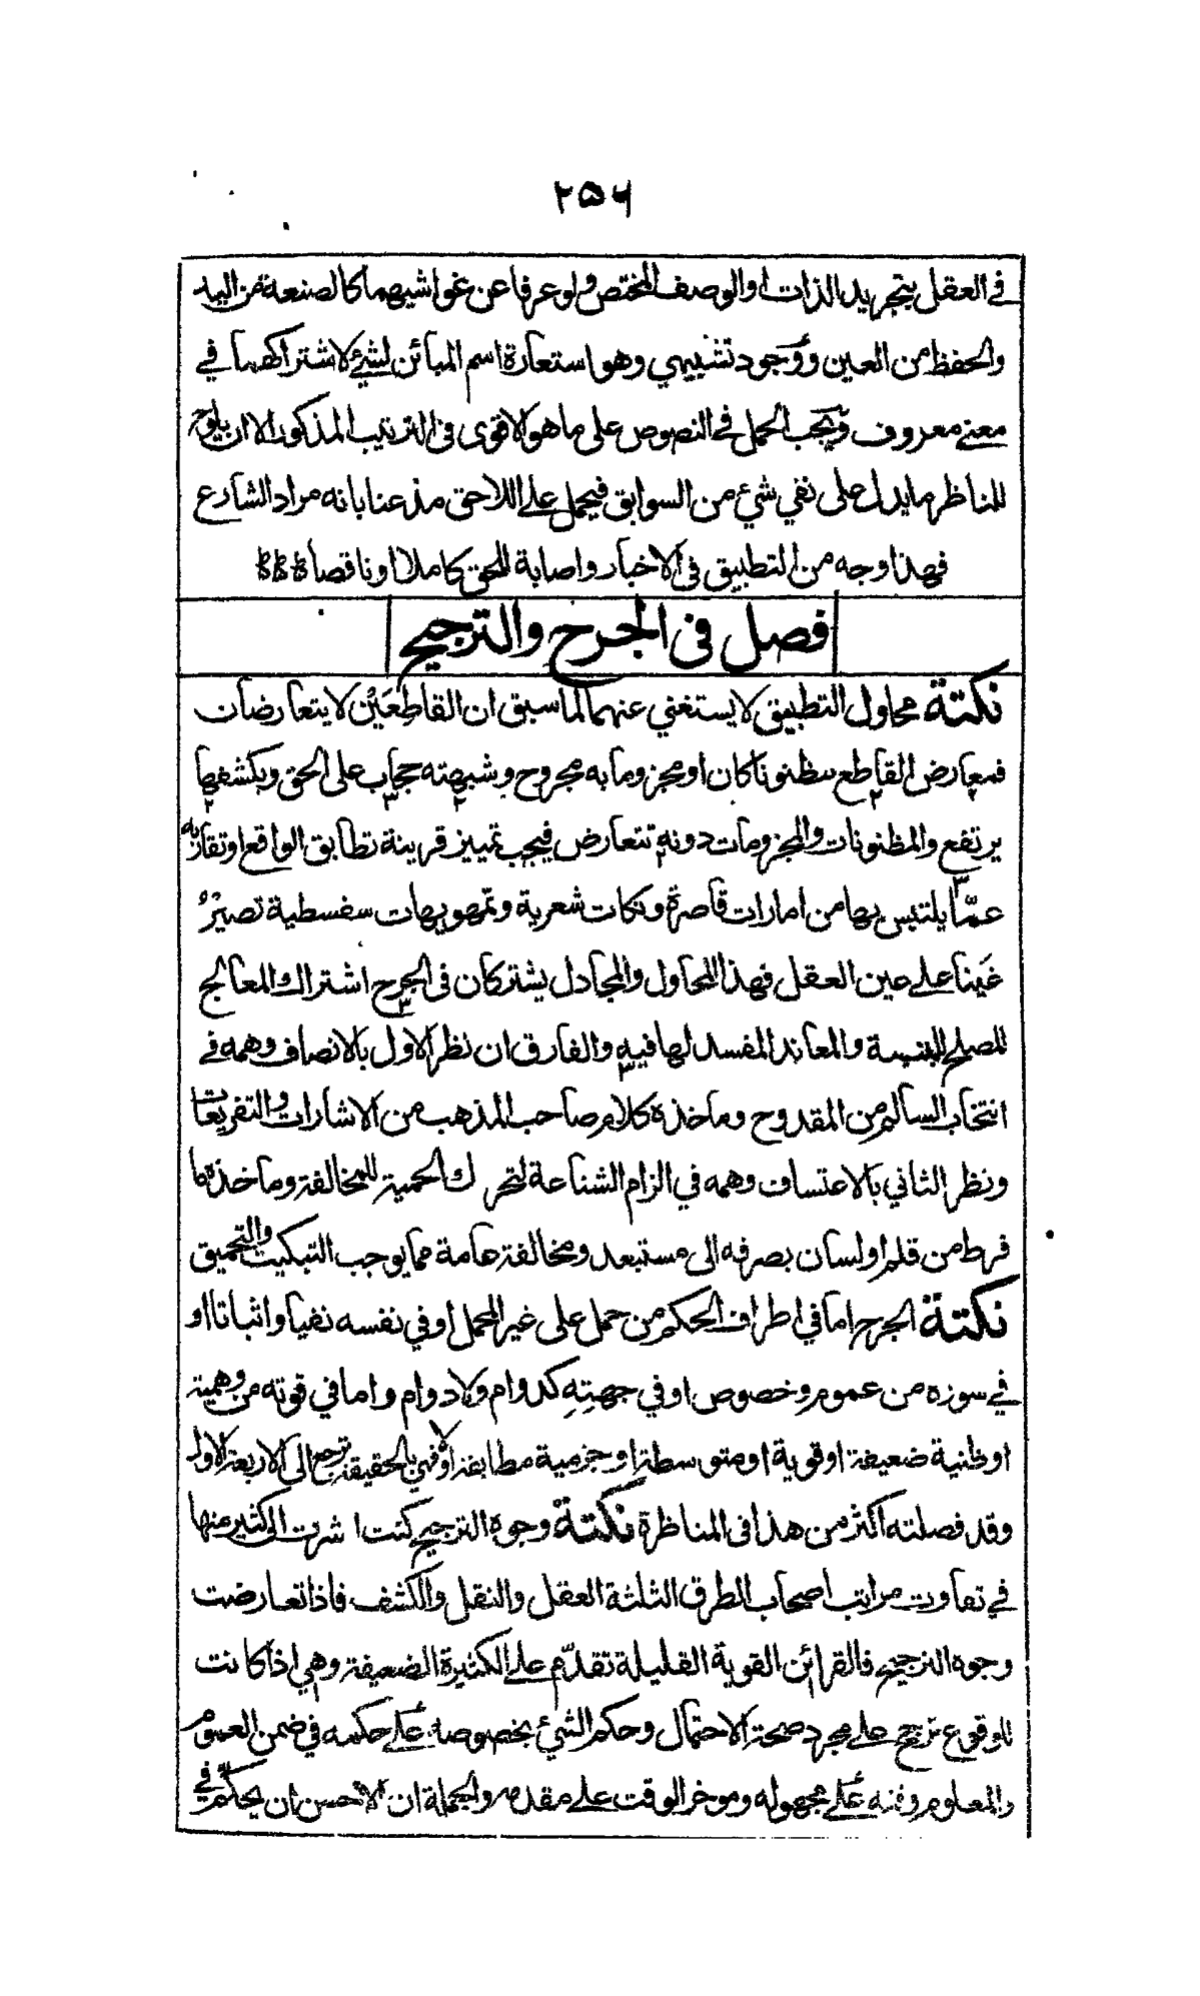 ۲۵۶
في العقل بتجريد الذات او الوصف المختص ولو عرفا عن غواشيهما كالصنعة من اليد
والحفظ من العين ووجود تشبيهي وهو استعارة اسم المبائن لشئ لاشتراكهما في
معنى معروف ويجب الحمل في النصوص على ما هو الاقوى في الترتيب المذكور الا ان يلوح
للناظر ما يدل على نفي شيء من السوابق فيحمل على اللاحق مذعنا بانه مراد الشارع
فهذا وجه من التطبيق في الاخبار واصابة للحق كاملا او ناقصا
فصل في الجرح والترجيح
نكتة محاول التطبيق لا يستغني عنهما لما سبق ان القاطعَيْن لا يتعارضان
فمعارض القاطع مظنونا كان او مجزوما به مجروح وشبهته حجاب على الحق وبكشفها
يرتفع والمظنونات والمجزومات دونه تتعارض فيجب تمييز قرينة تطابق الواقع او تقاربه
عمّا يلتبس بها من امارات قاصرة ونكات شعرية وتمويهات سفسطية تصير
غينا على عين العقل فهذا المحاول والمجادل يشتركان في الجرح اشتراك المعالج
للصلح للبنية والمعاند المفسد لها فيه والفارق ان نظر الاول بالانصاف وهمه في
انتخاب السالم من المقدوح وماخذه كلام صاحب المذهب من الاشارات والتفريعات
ونظر الثاني بالاعتساف وهمه في الزام الشناعة لتحرك الحمية للمخالفة وماخذه ما
فرط من قلم او لسان بصرفه الى مستبعد ومخالفة عامة مما يوجب التبكيت والتحميق
نكتة الجرح اما في اطراف الحكم من حمل على غير المحمل او في نفسه نفيا واثباتا او
في سوره من عموم وخصوص او في جهتِهِ كدوام ولا دوام واما في قوته من وهمية
او ظنية ضعيفة او قوية او متوسطة او جزمية مطابقة او لا فهي بالحقيقة ترجع الى الاربعة الاول
وقد فصلته اكثر من هذا في المناظرة نكتة وجوه الترجيح كنت اشرت الى كثير منها
في تفاوت مراتب اصحاب الطرق الثلثة العقل والنقل والكشف فاذا تعارضت
وجوه الترجيح فالقرائن القوية القليلة تقدّم على الكثيرة الضعيفة وهي اذا كانت
للوقوع ترجح على مجرد صحة الاحتمال وحكم الشئ بخصوصه على حكمه في ضمن العموم
والمعلوم وقته على مجهوله وموخر الوقت على مقدمه والجملة ان الاحسن ان يحكّم في